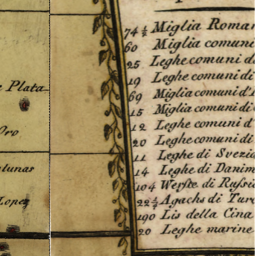 74½ Miglia Roman
60 Miglia comuni
25 Leghe comuni d
19 Leghe comuni di
69 Miglia comuni d'I
15 Miglia comuni di
12 Leghe comuni d
20 Leghe comuni di
11 Leghe di Svezia
14 Leghe di Danim
104 Werste di Russia
22½ Agachs di Tur
190 Lis della Cina
20 Leghe marine
e Plata
Oro
atunar
Lopez